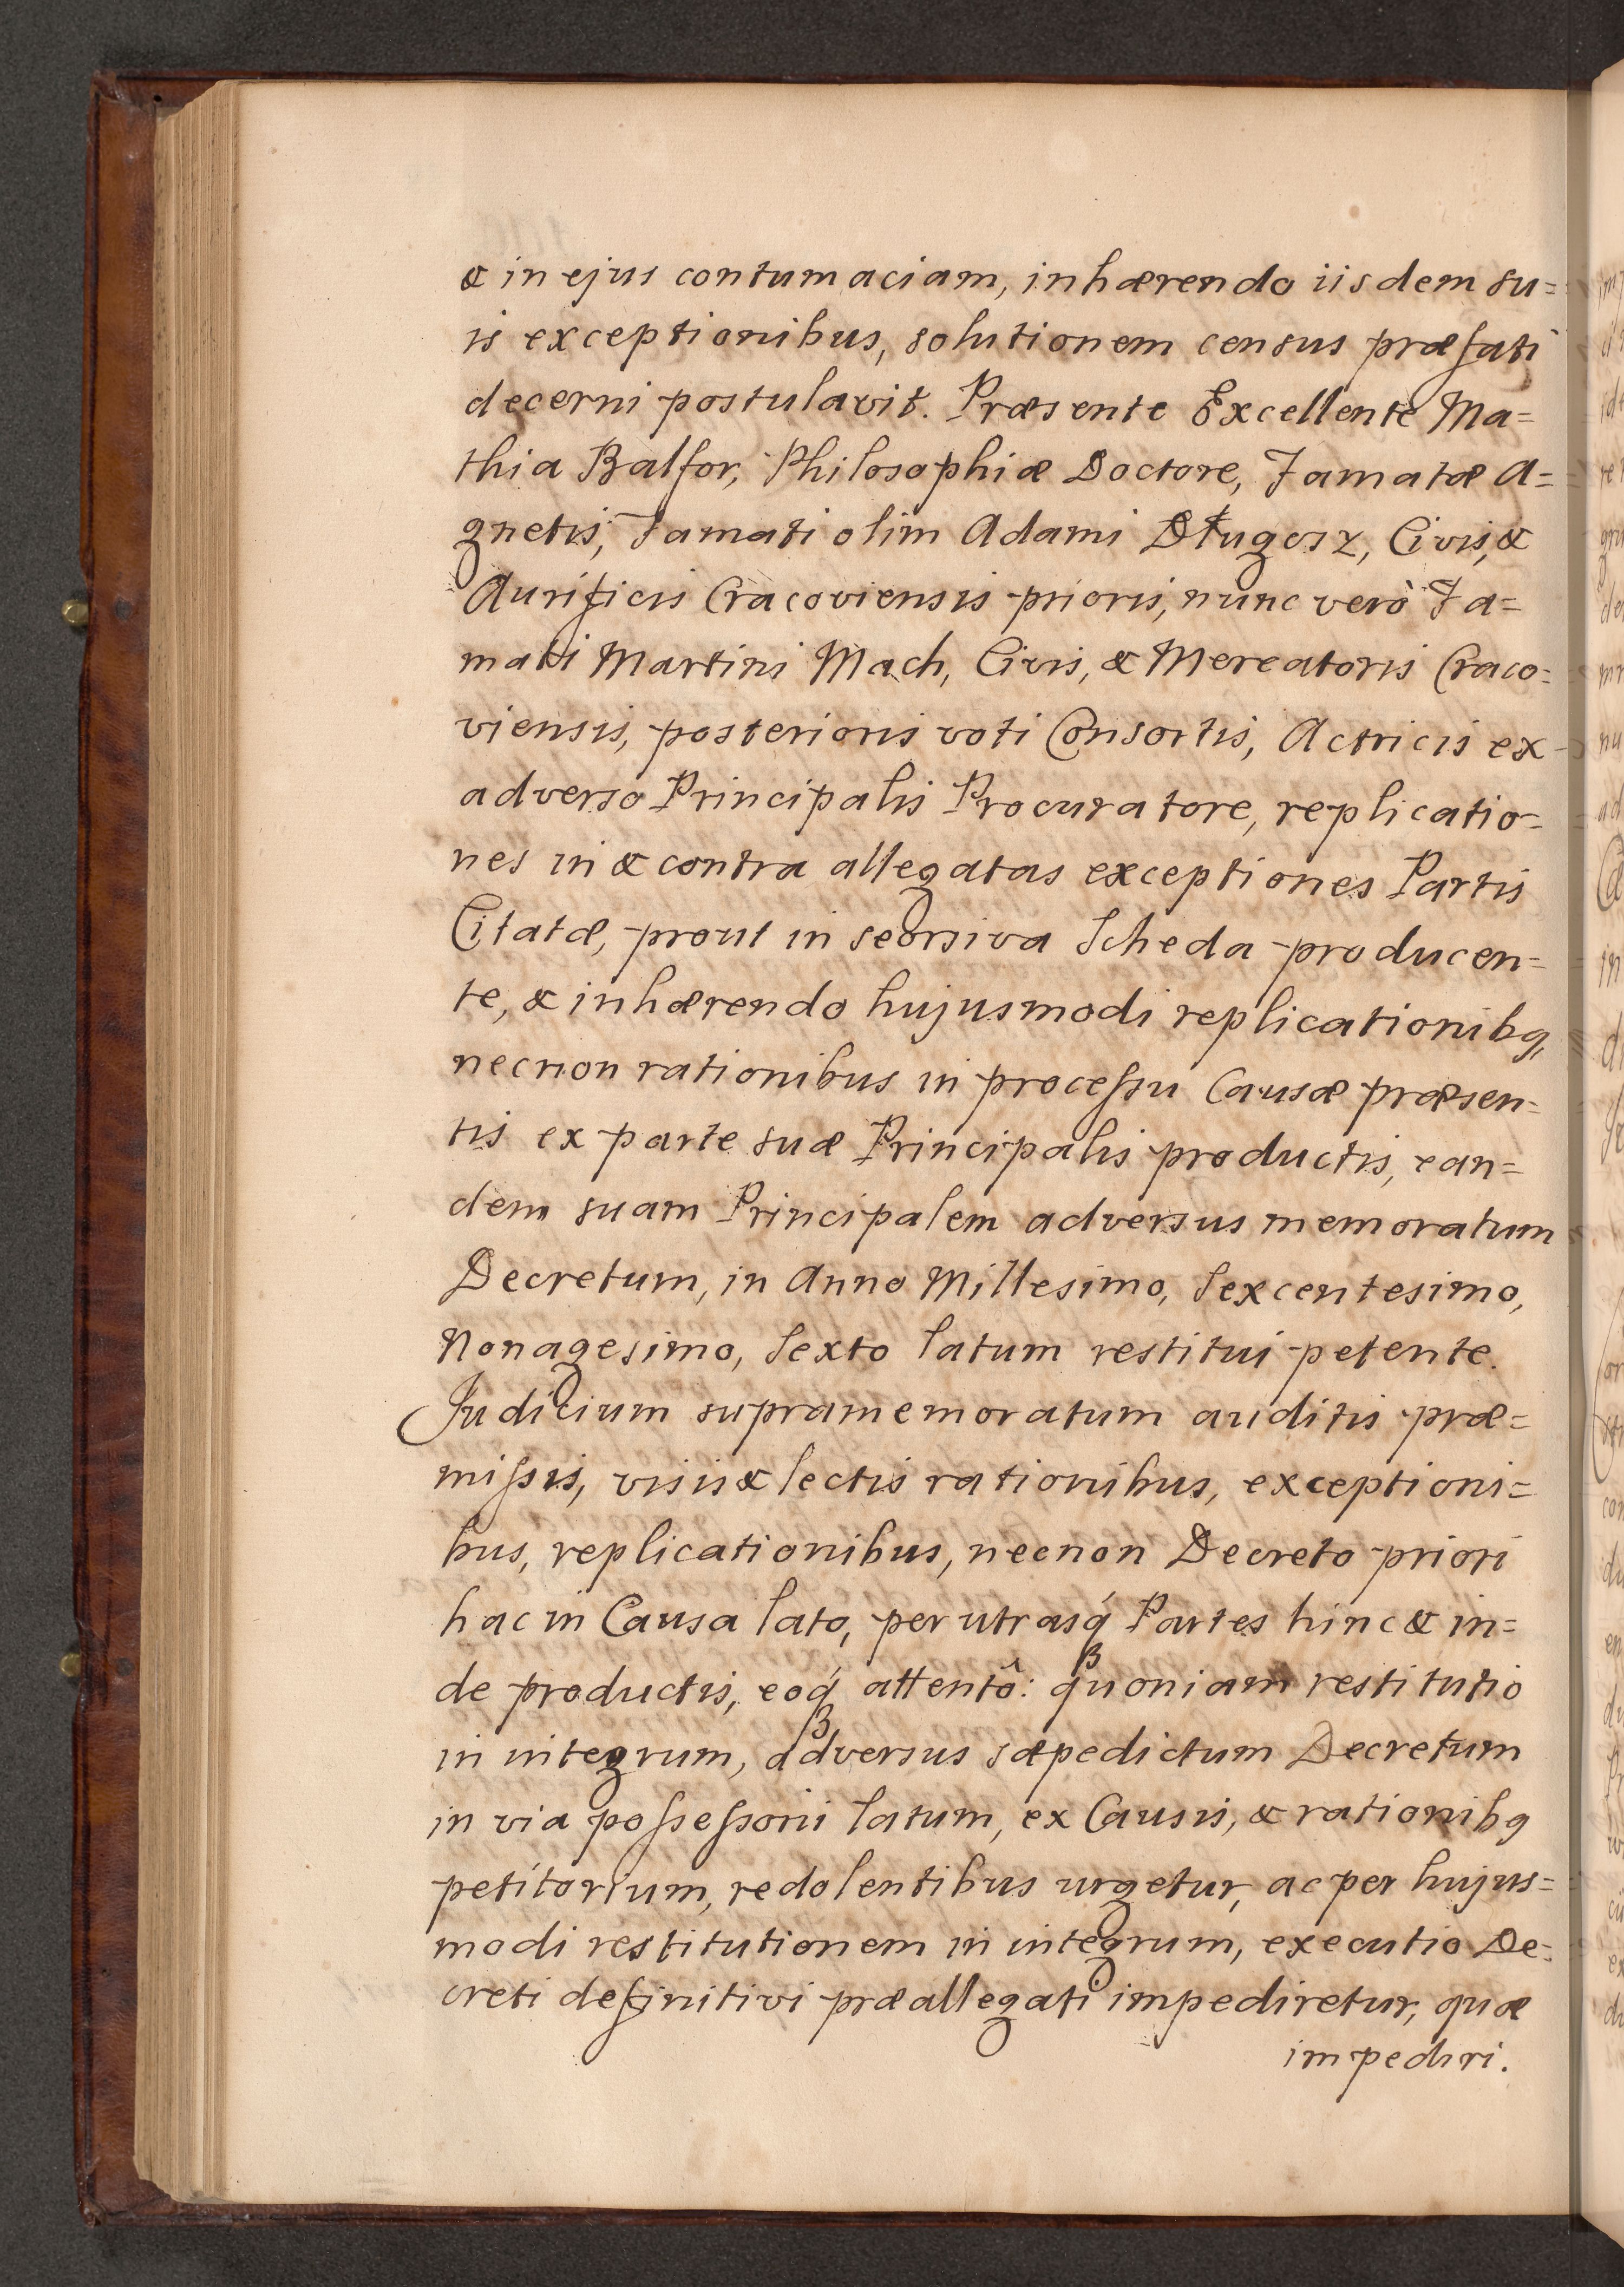 & in ejus contumaciam, inhærendo iisdem su=
is exceptionibus, solutionem census præfati
decerni postulavit. Præsente Excellente Ma=
thia Balfor, Philosophiæ Doctore, Famatæ A=
gnetis, Famati olim Adami Długosz, Civis, &
Aurificis Cracoviensis prioris, nunc verò Fa=
mati Martini Mach, Civis, & Mercatoris Craco=
viensis, posterioris voti Consortis, Actricis ex
adverso Principalis Procuratore, replicatio=
nes in & contra allegatas exceptiones Partis
Citatæ, prout in seorsiva Scheda producen=
te, & inhærendo hujusmodi replicationibq,
necnon rationibus in processu Causæ præsen=
tis ex parte suæ Principalis productis, ean=
dem suam Principalem adversus memoratum
Decretum, in Anno Millesimo, Sexcentesimo,
Nonagesimo, Sexto latum restitui petente.
Judicium supramemoratum auditis præ=
missis, visis & lectis rationibus, exceptioni=
bus, replicationibus, necnon Decreto priori
hac in Causa lato, per utrasq́ Partes hinc & in=
de productis, eoq́ attentô: quoniam restitutio
in integrum, adversus sæpedictum Decretum
in via possessorii latum, ex Causis, & rationibq
petitorium, redolentibus urgetur, ac per hujus=
modi restitutionem in integrum, executio De=
creti definitivi præallegati impediretur, quæ
impediri.